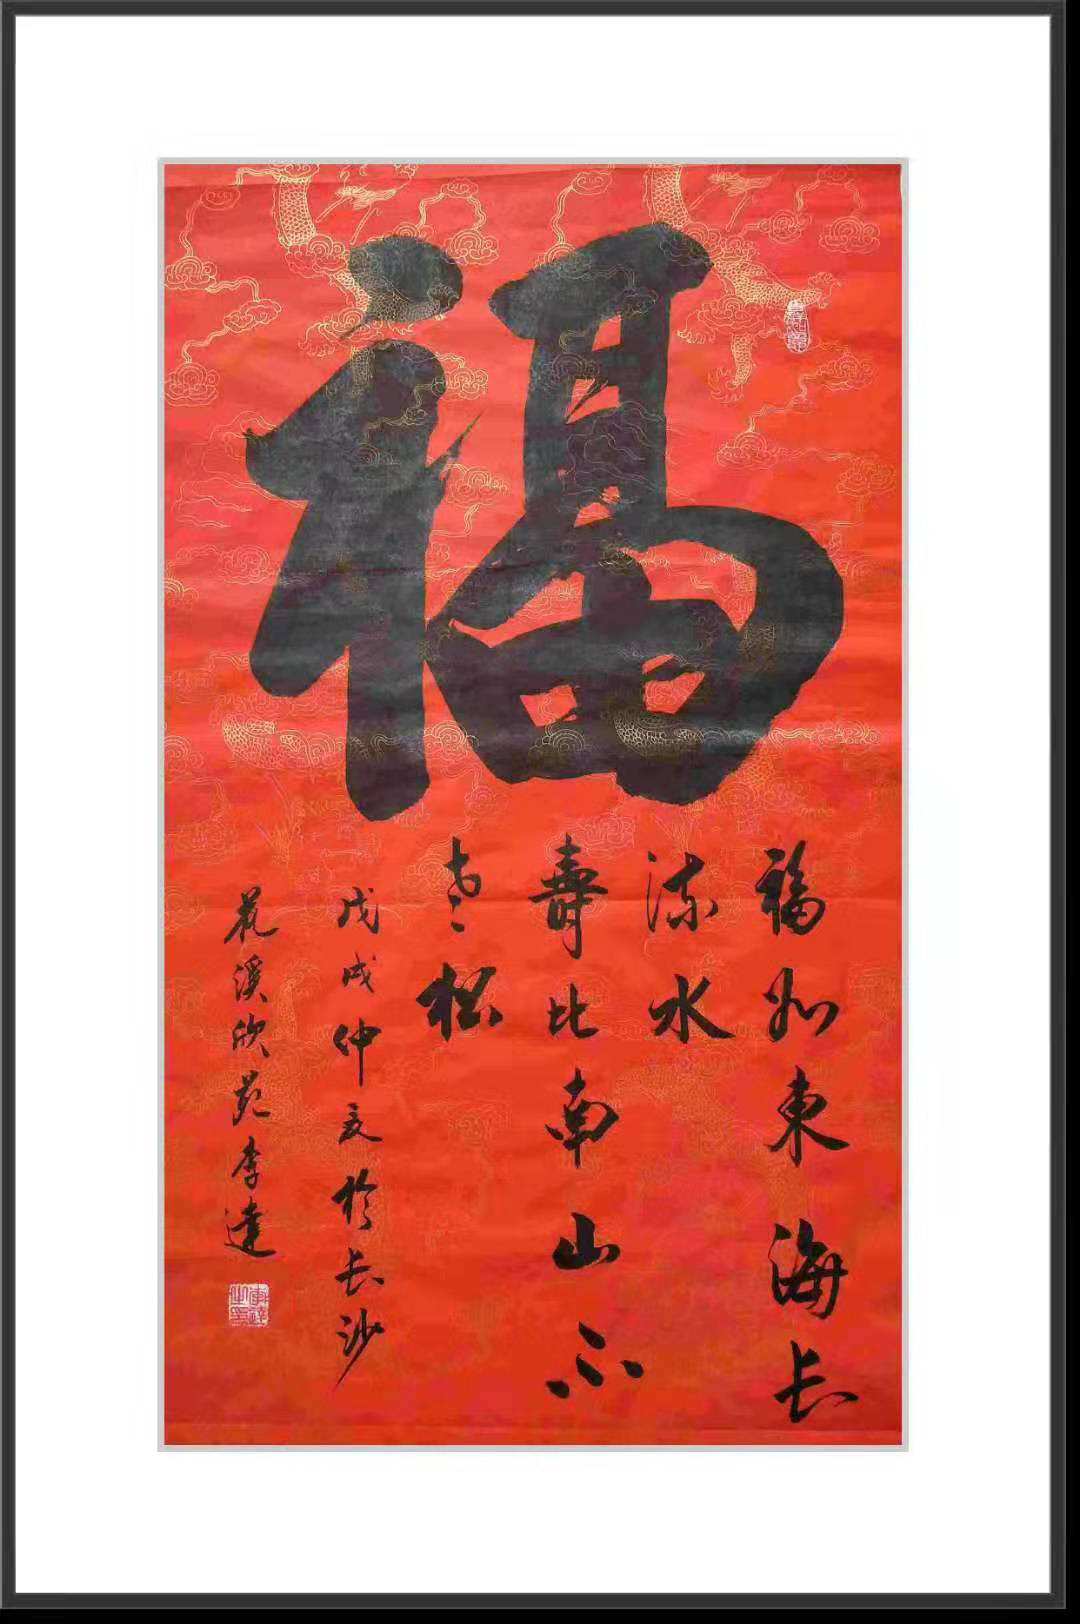 福
福如東海长
流水
壽比南山不
老松
戊戌仲夏於长沙
花溪欣苑李達